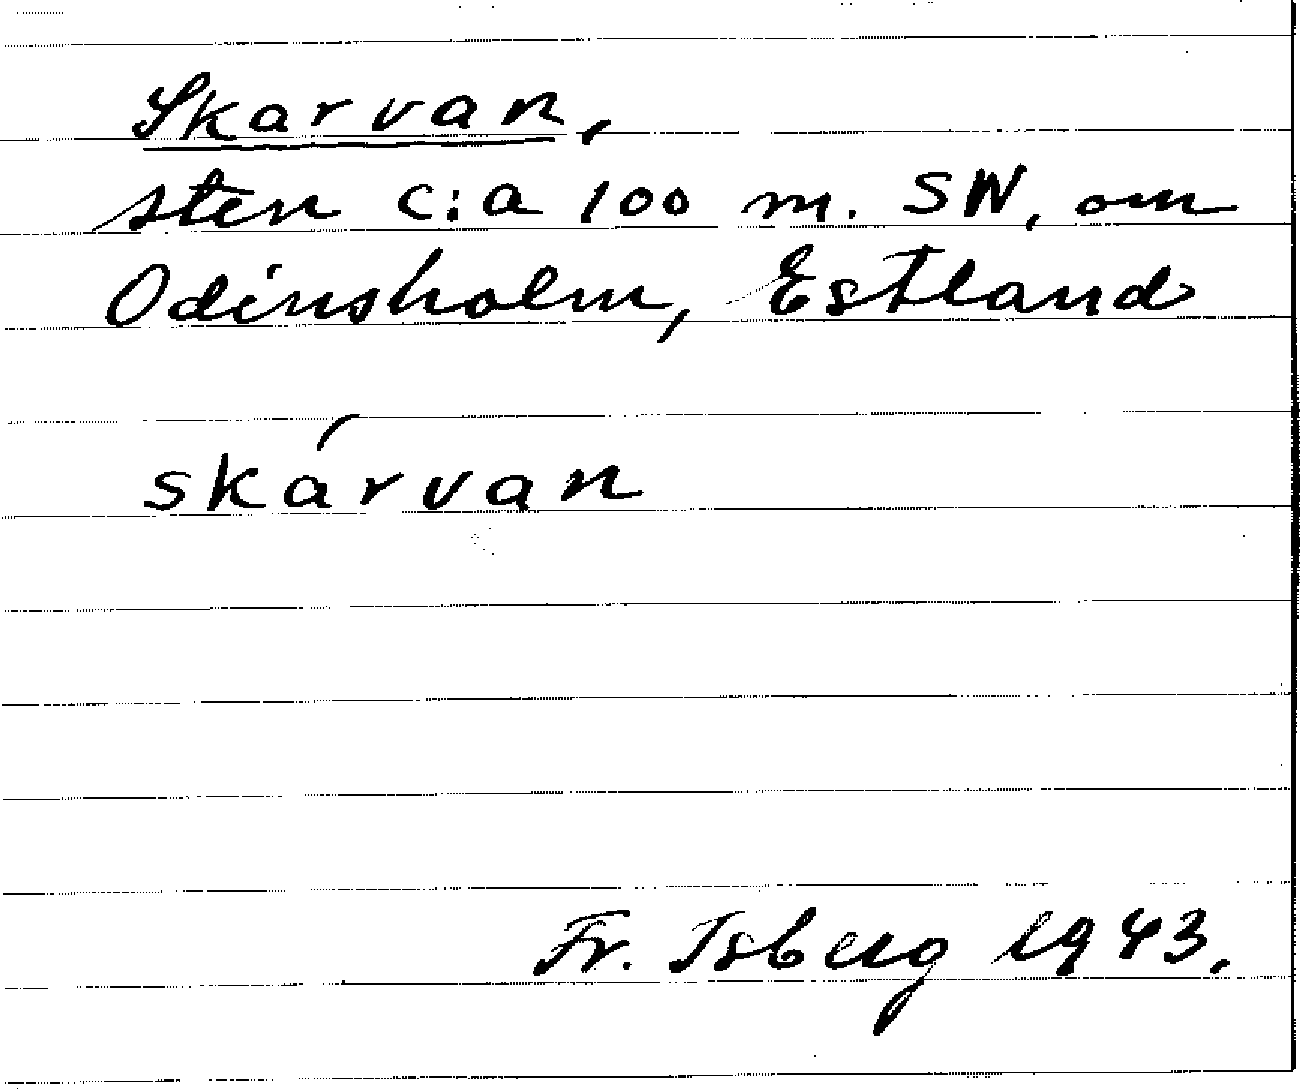 Skarvan,
sten c:a 100 m. SW, om
Odinsholm, Estland
skárvan
Fr. Isberg 1943.